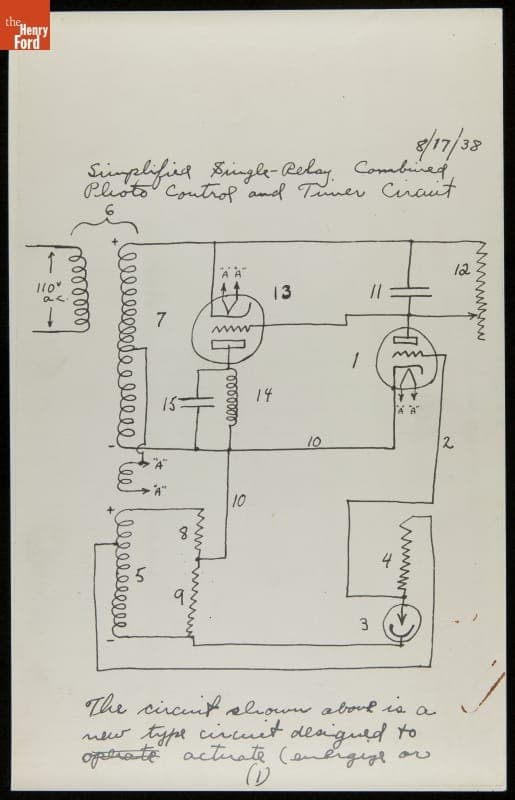 the
Henry
Ford
8/17/38
Simplified Single-Relay Combined
Photo Control and Timer Circuit
6
+
110 v
a.c.
7
"A" "A"
13
11
12
1
15
14
"A" "A"
-
10
2
"A"
"A"
+
10
8
5
9
4
3
-
The circuit shown above is a
new type circuit designed to
operate actuate (energize or
(1)